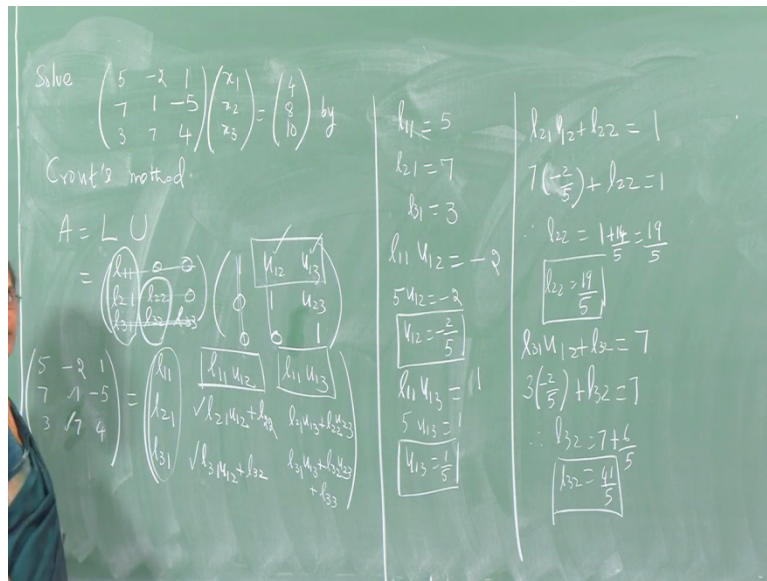 Solve
5 -2 1 x1 4
7 1 -5 x2 = 8 by
3 7 4 x3 10
Crout's method.
A = L U
l11 0 0 1 u12 u13
= l21 l22 0 0 1 u23
l31 l32 l33 0 0 1
5 -2 1 l11 l11 u12 l11 u13
7 1 -5 = l21 ✓l21u12+l22 l21u13+l22u23
3 7 4 l31 ✓l31u12+l32 l31u13+l32u23
+l33
l11 = 5
l21 = 7
l31 = 3
l11 u12 = -2
5 u12 = -2
u12 = -2/5
l11 u13 = 1
5 u13 = 1
u13 = 1/5
l21 u12 + l22 = 1
7(-2/5) + l22 = 1
∴ l22 = 1+14/5 = 19/5
l22 = 19/5
l31 u12 + l32 = 7
3(-2/5) + l32 = 7
∴ l32 = 7+6/5
l32 = 41/5